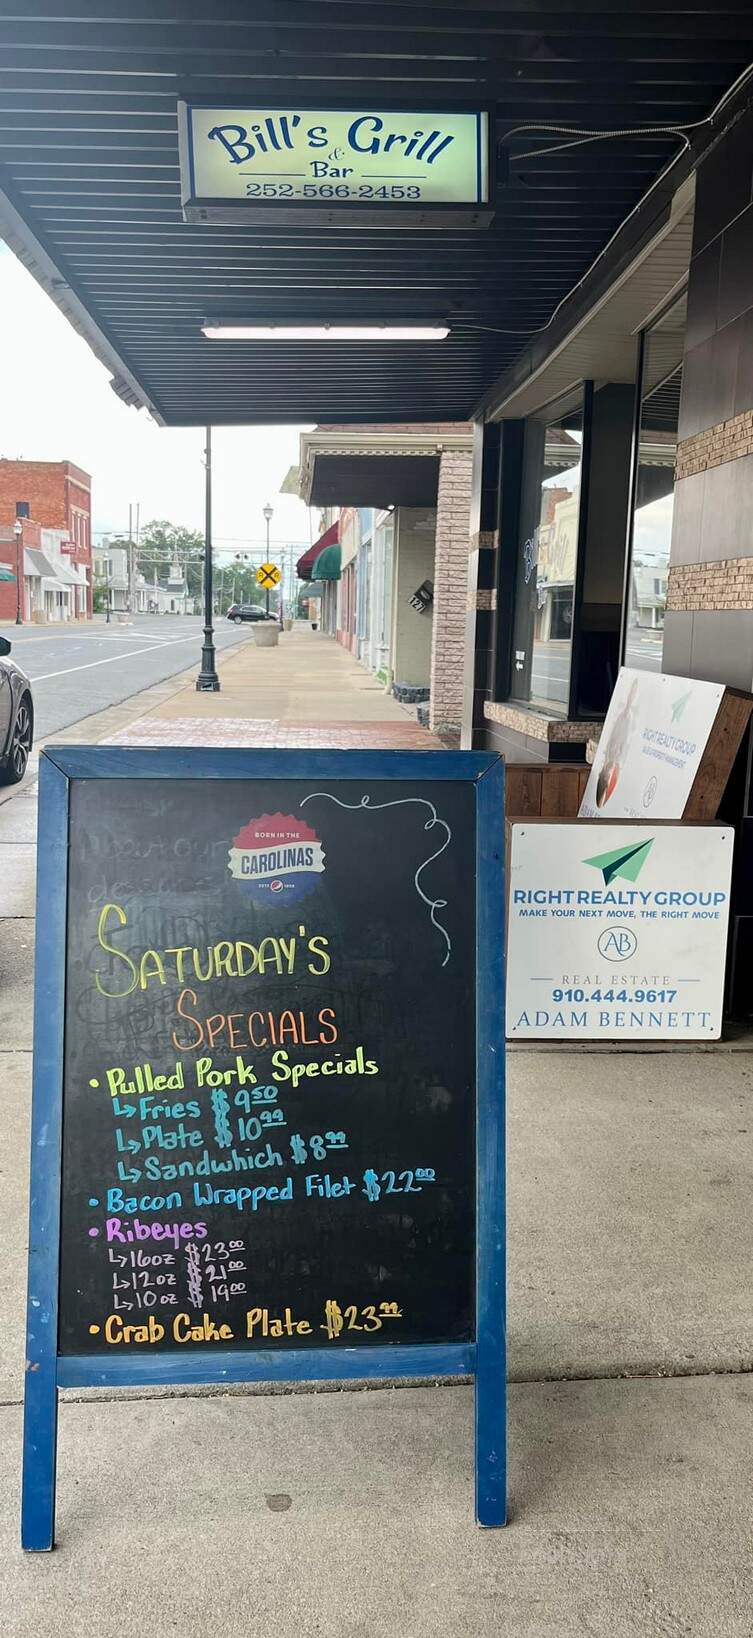 Bill's Grill
&
Bar
252-566-2453
127
RIGHT REALTY GROUP
BORN IN THE
CAROLINAS
SATURDAY'S
SPECIALS
• Pulled Pork Specials
↳ Fries $9.50
↳ Plate $10.99
↳ Sandwhich $8.99
• Bacon Wrapped Filet $22.00
• Ribeyes
↳ 16oz $23.00
↳ 12oz $21.00
↳ 10oz $19.00
• Crab Cake Plate $23.99
RIGHT REALTY GROUP
MAKE YOUR NEXT MOVE, THE RIGHT MOVE
AB
REAL ESTATE
910.444.9617
ADAM BENNETT